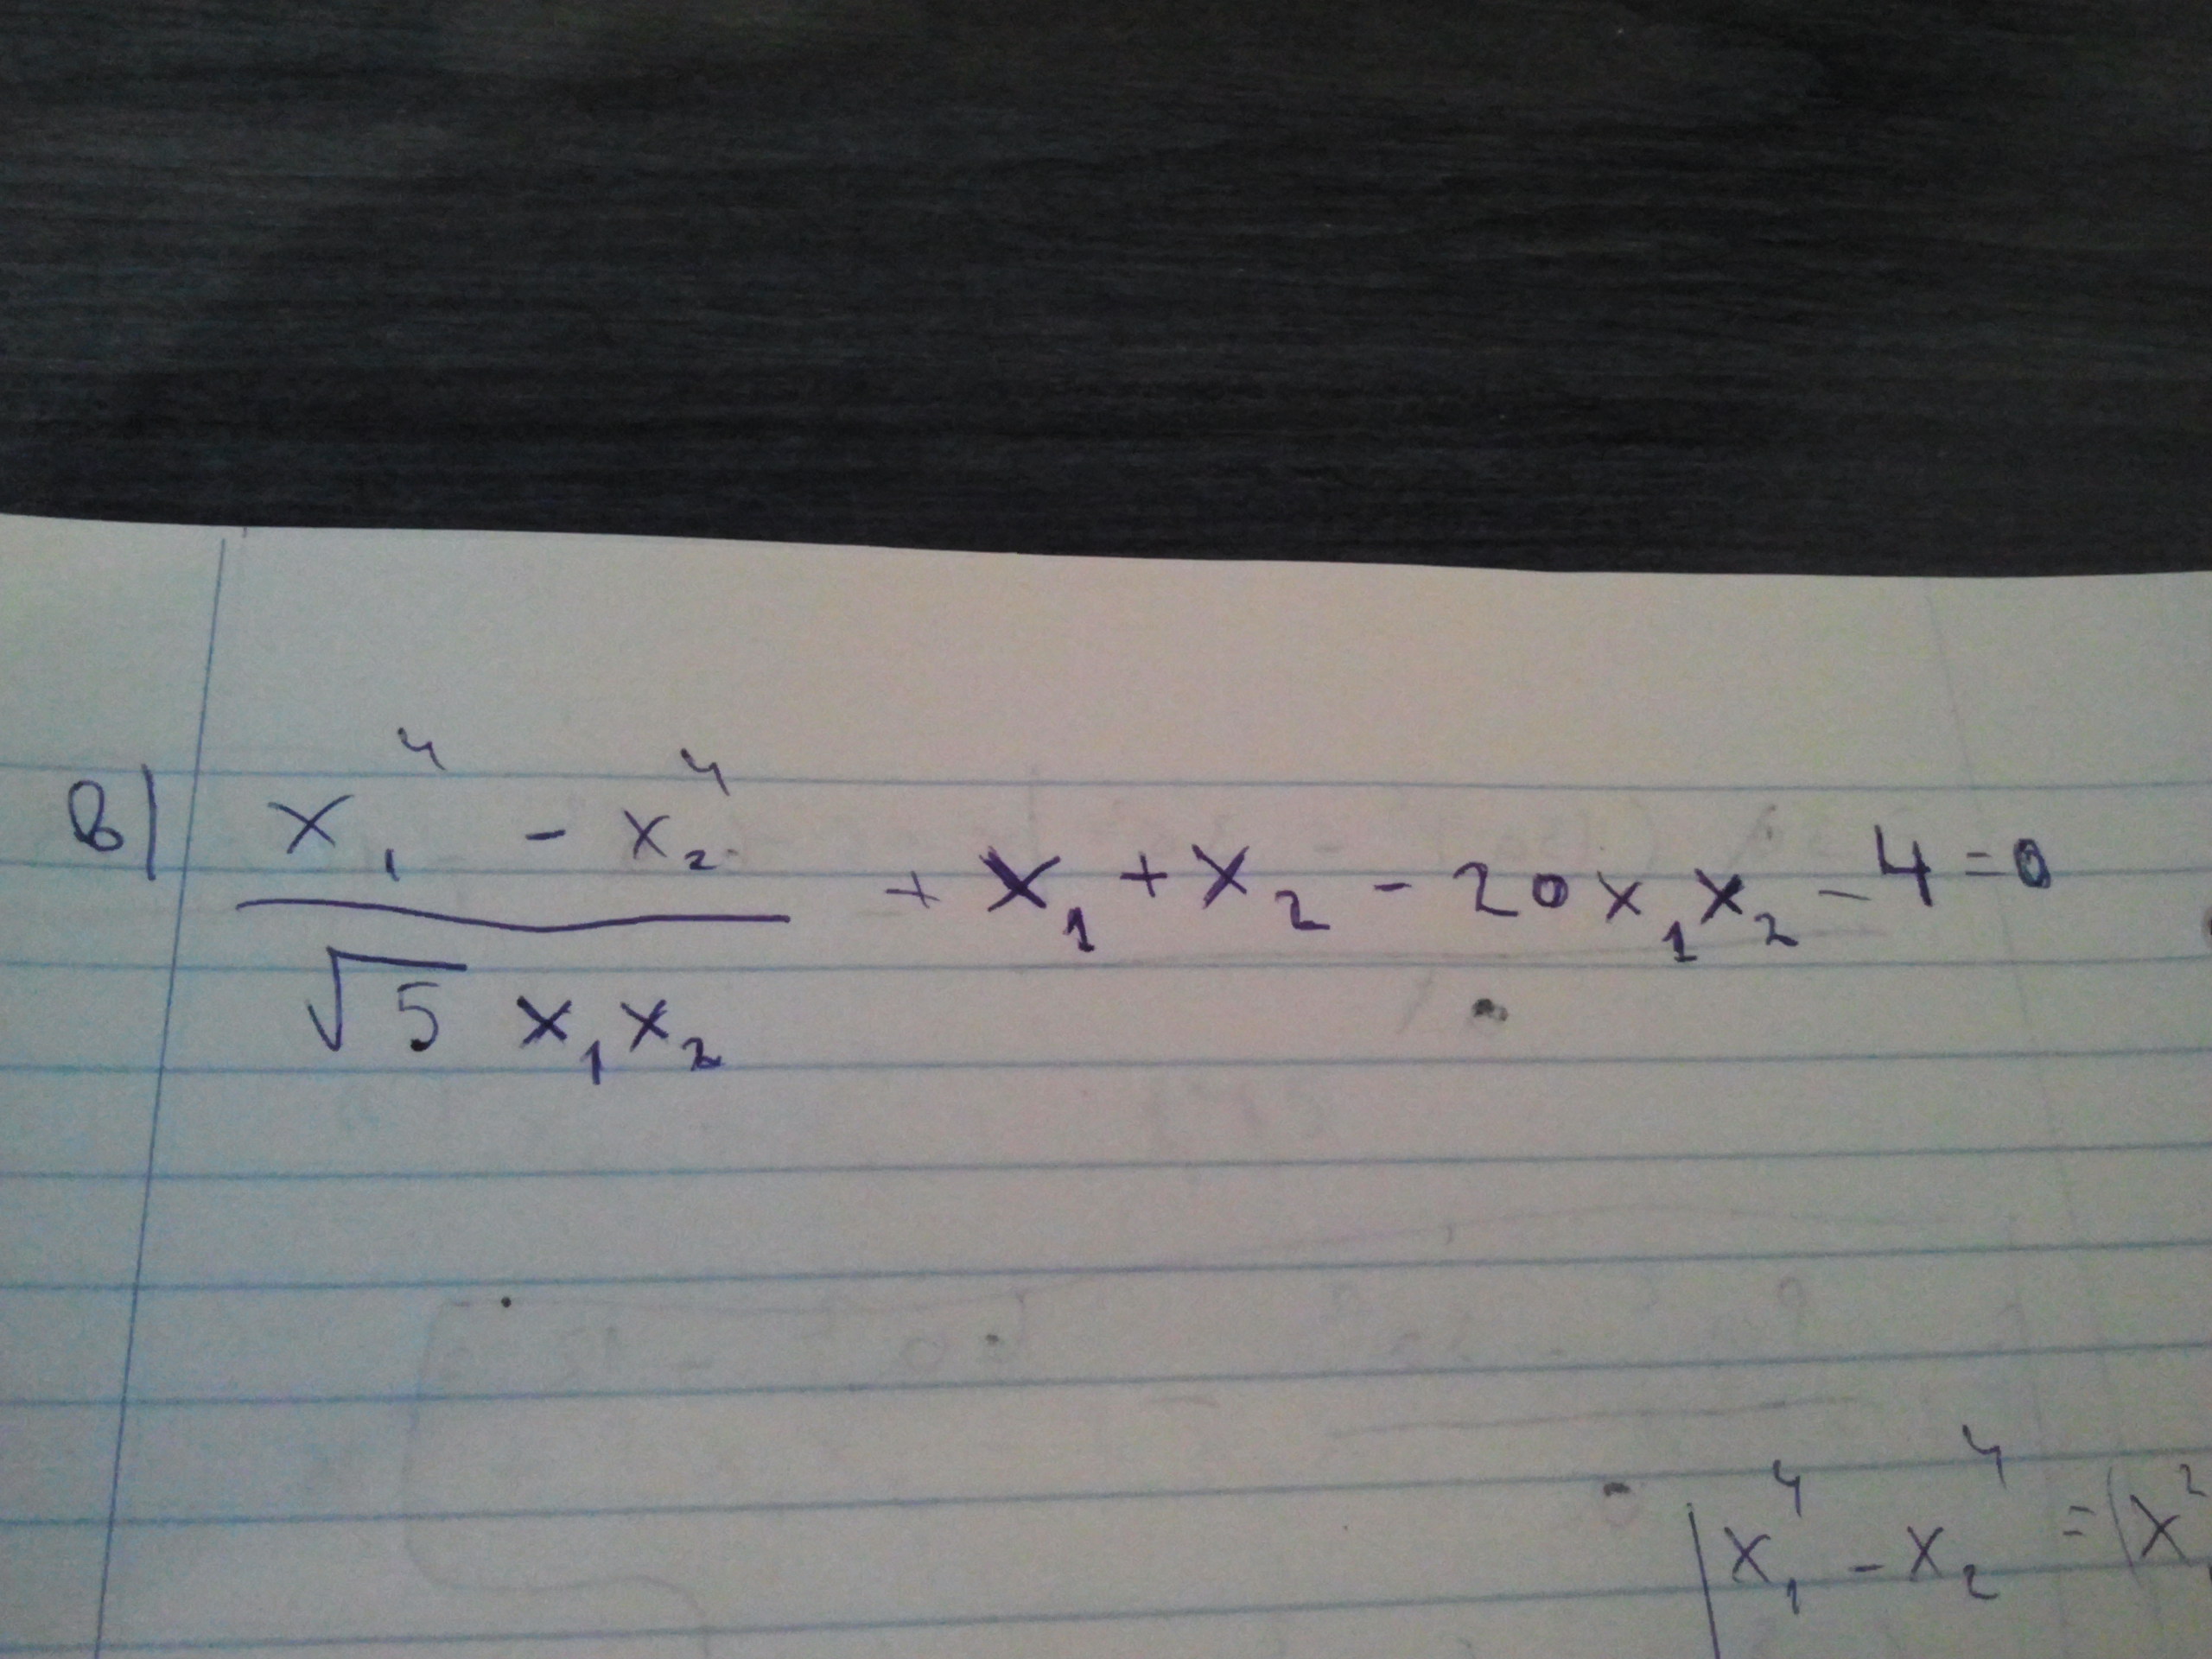 в) (x₁⁴ - x₂⁴)/(√5 x₁x₂) + x₁ + x₂ - 20x₁x₂ - 4 = 0
|x₁⁴ - x₂⁴ = (x₁²